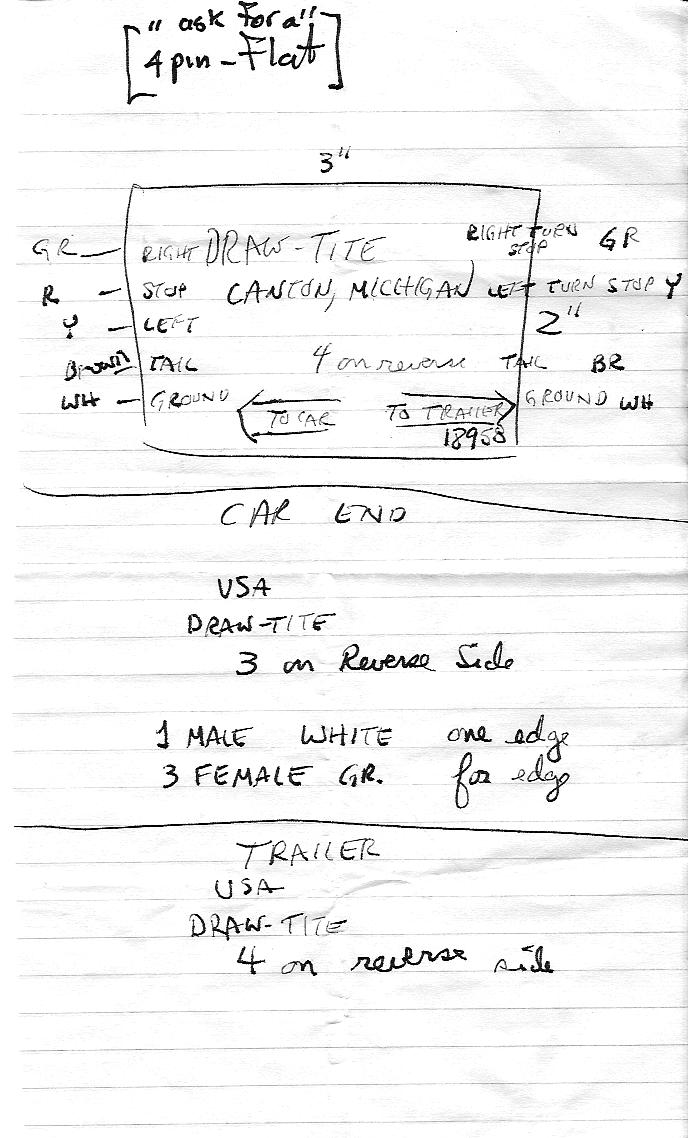 "ask For a"
4 pin - Flat
3"
GR RIGHT DRAW-TITE RIGHT TURN STOP GR
R STOP CANTON, MICHIGAN LEFT TURN STOP Y
Y LEFT 2"
Brown TAIL 4 on reverse TAIL BR
WH GROUND TO CAR TO TRAILER GROUND WH
18958
CAR END
USA
DRAW-TITE
3 on Reverse Side
1 MALE WHITE one edge
3 FEMALE GR. for edge
TRAILER
USA
DRAW-TITE
4 on reverse side